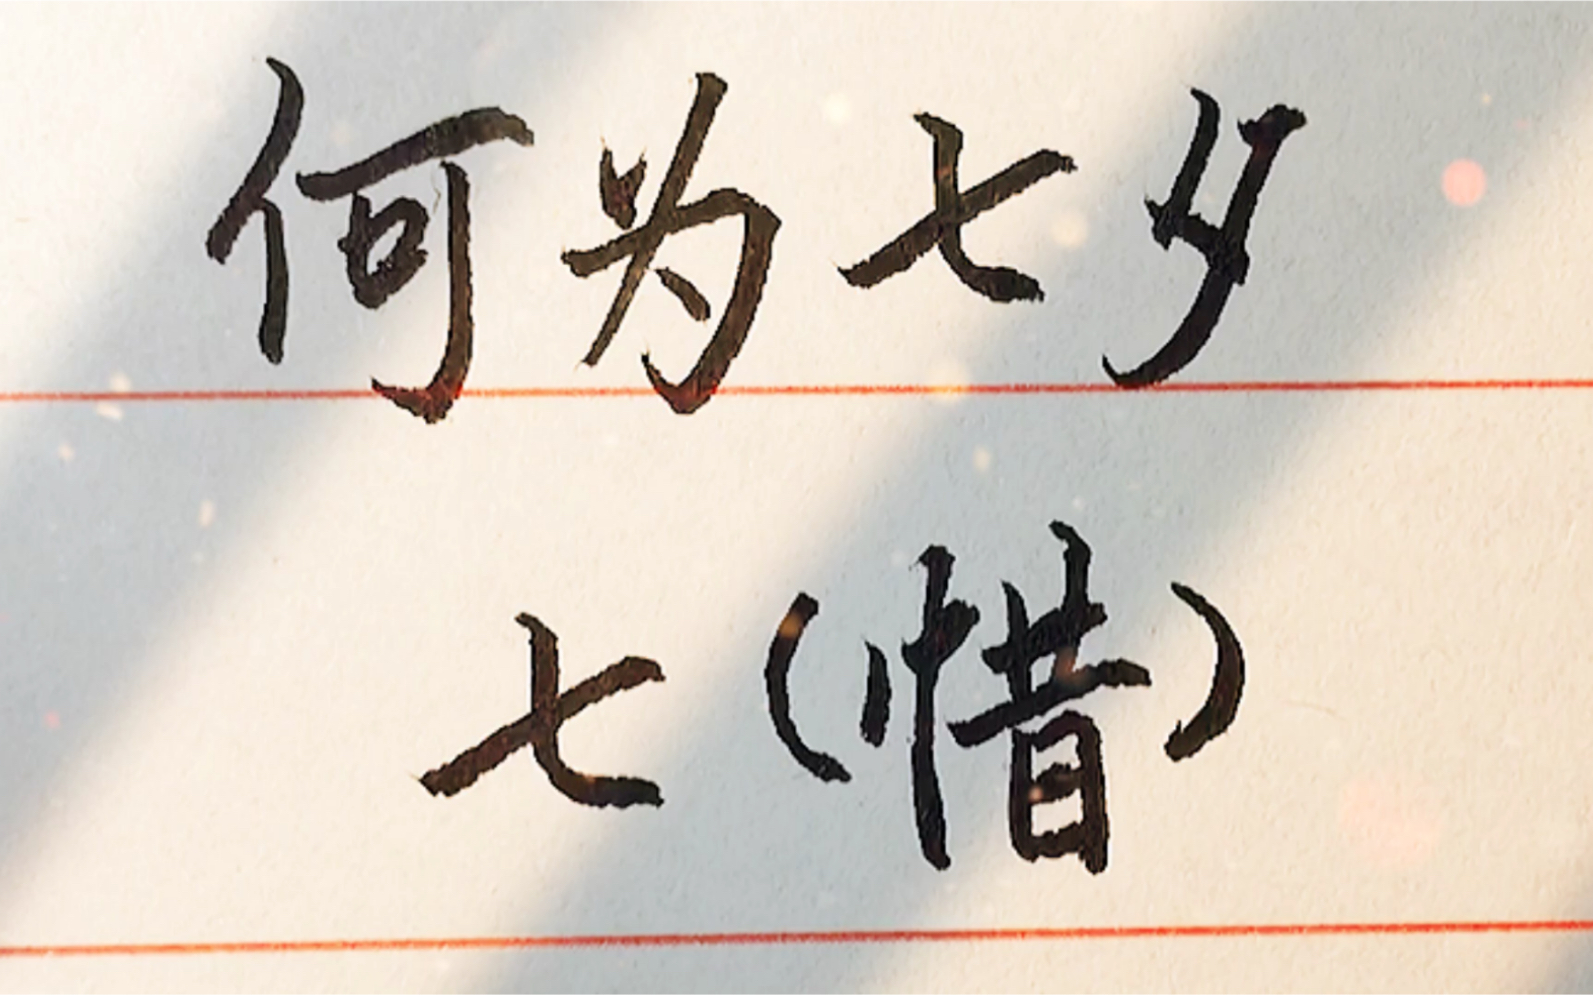 何为七夕
七(惜)